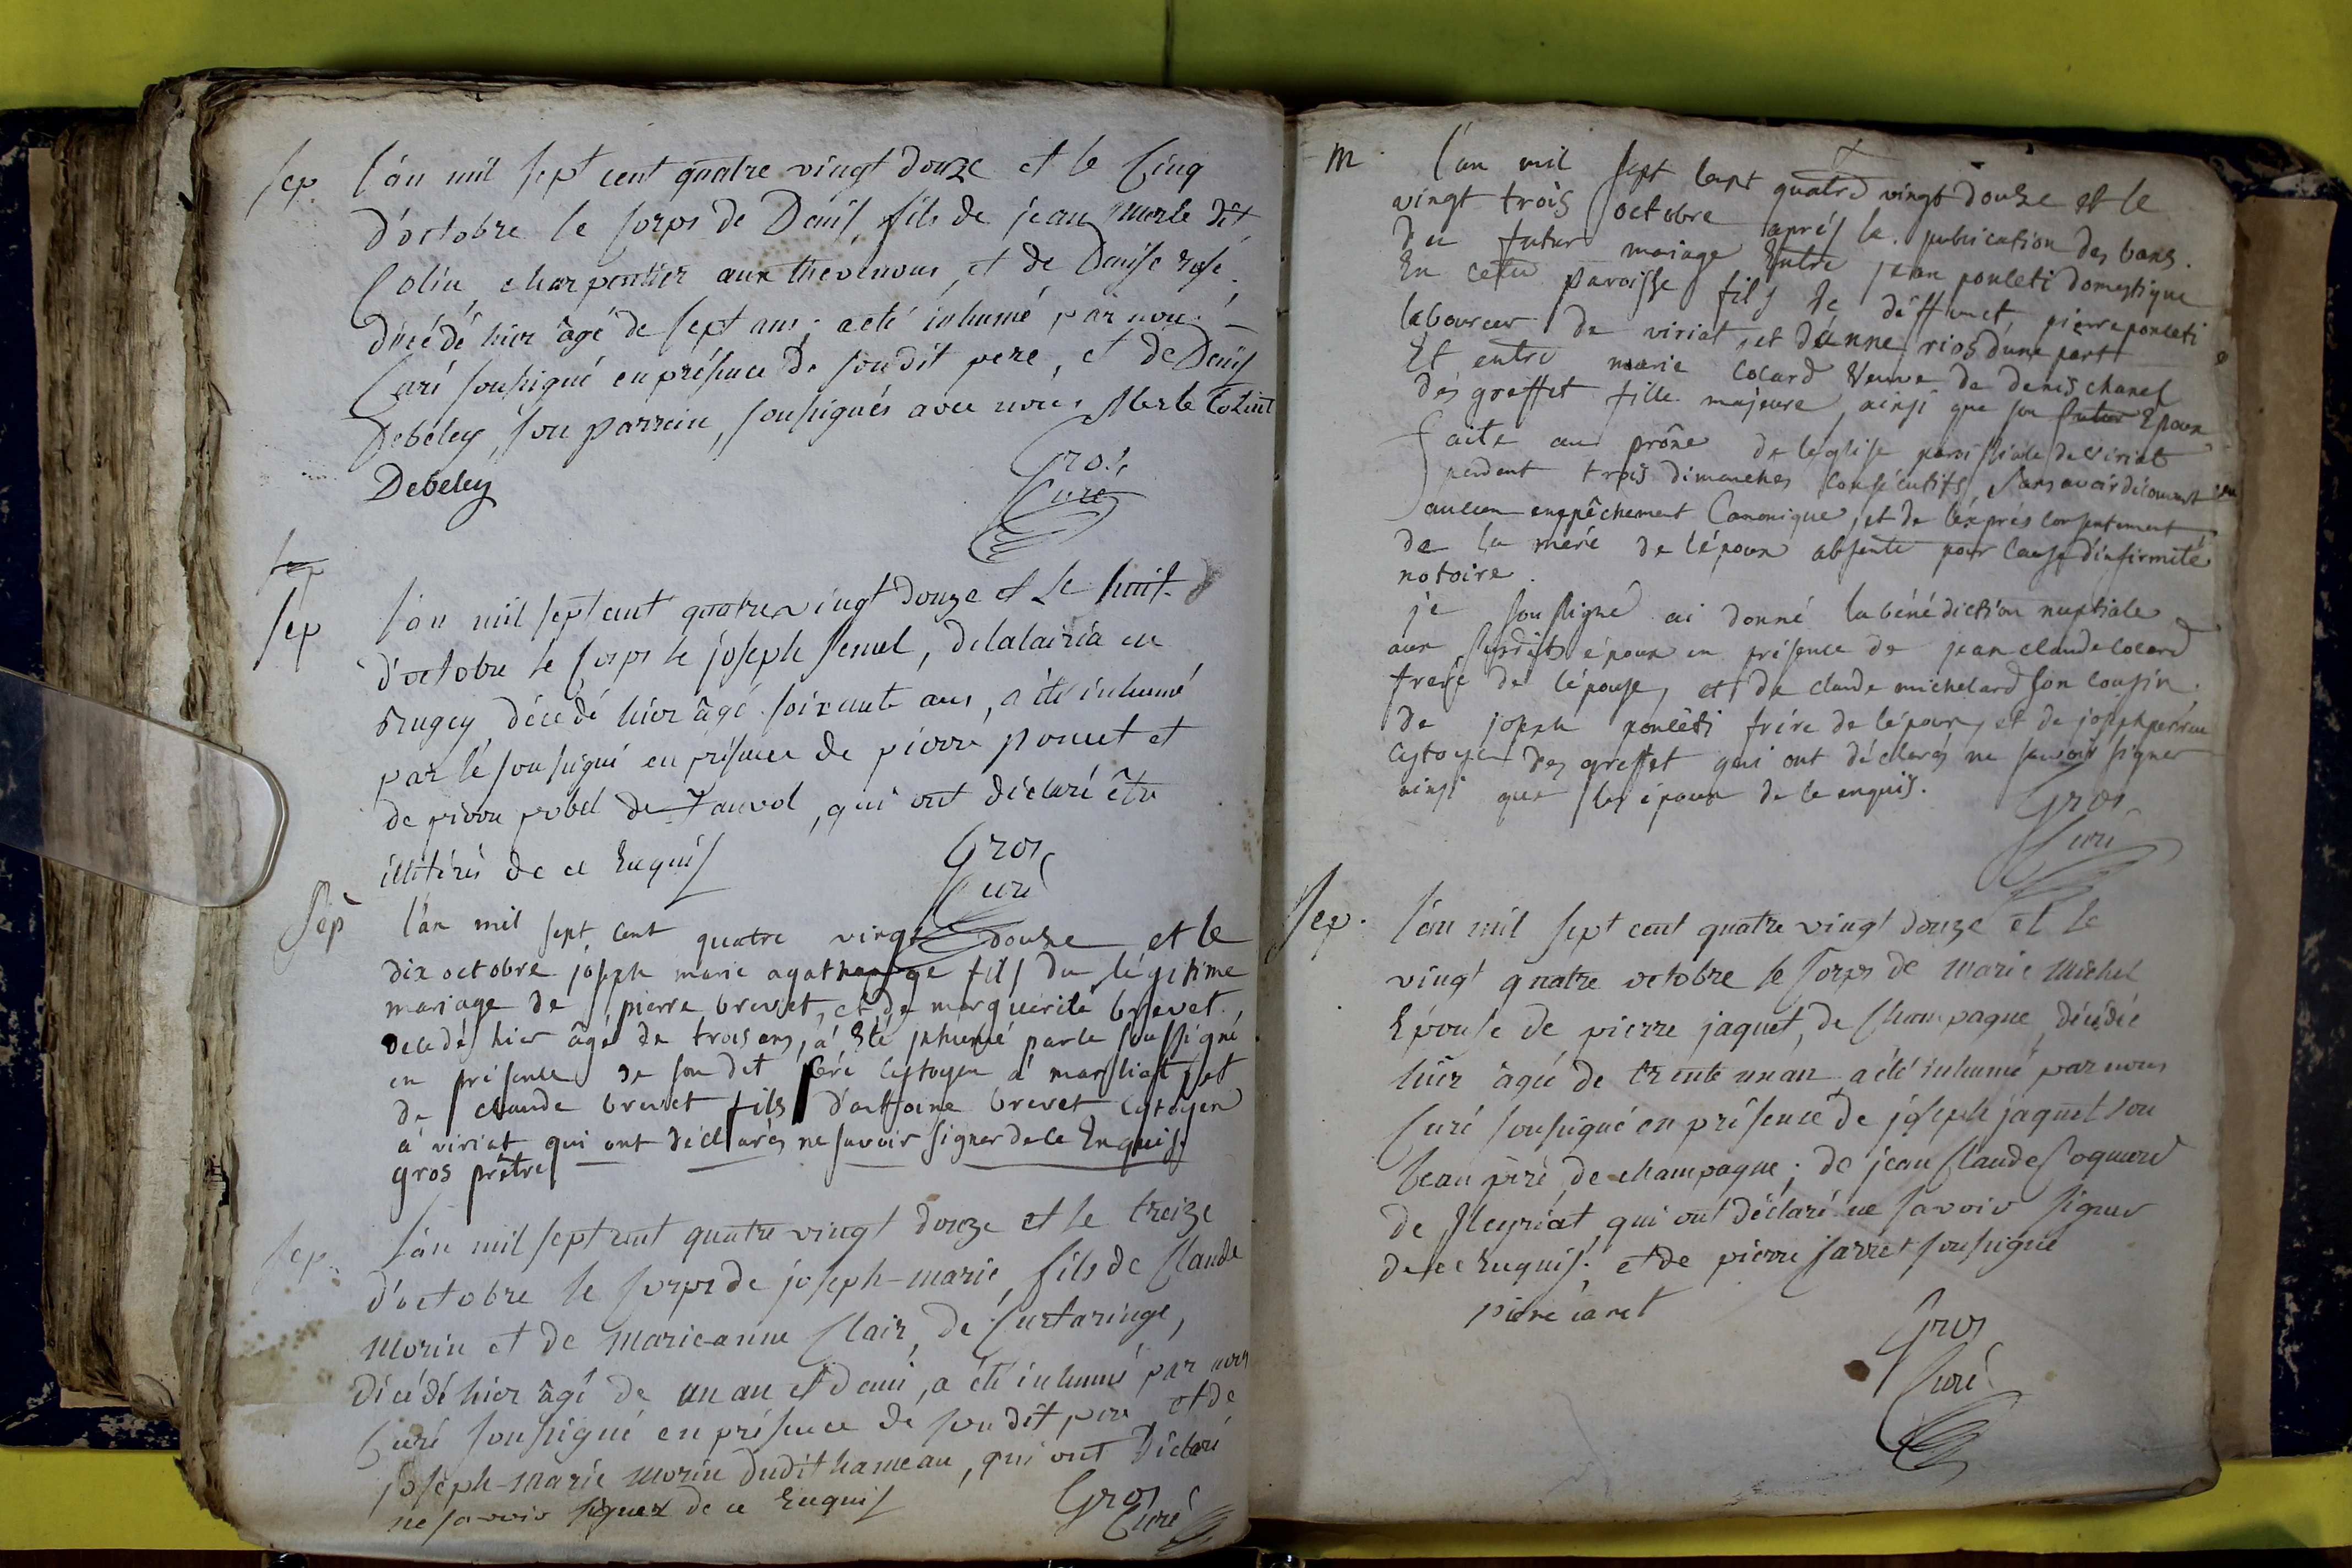 sep. l'an mil sept cent quatre vingt douze et le cinq
d'octobre le corps de Denis, fils de jean Merle dit
Colin, charpentier aux thevenons, et de Denise rose,
décédé hier âgé de sept ans; a eté inhumé par nous
Curé soussigné en présence de son dit pere, et de Denis
Debeley, son parrain, soussignés avec nous. Merle Colint
Debeley Gros,
Curé
sep
sep l'an mil sept cent quatre vingt douze et le huit
d'octobre le corps de joseph, de
Bugey, décédé hier âgé soixante ans, a été inhumé
par le soussigné en présence de pierre poncet et
de pierre pobel de, qui ont déclaré être
illitérés de ce Enquis
Gros
Curé
sep l'an mil sept cent quatre vingt douze et le
dix octobre joseph marie fils du légitime
mariage de pierre brevet, et de marguerite brevet.
décédé hier âgé de trois ans, a Eté jnhumé par le soussigné
en présence de son dit père cytoyen à marsliat, et
de claude brevet fils d'antoine brevet cytoyen
à viriat qui ont déclarés ne savoir signer de ce Enquis.
gros prêtre
sep. l'an mil sept cent quatre vingt douze et le treize
d'octobre le corps de joseph-marie, fils de Claude
Morin et de Marie-anne Clair, de Curtaringe,
décédé hier âgé de un an et demi, a été inhumé par nous
Curé soussigné en présence de son dit pere et de
joseph-Marie Morin dudit hameau, qui ont Déclaré
ne savoir signer de ce Enquis Gros
Curé
m. l'an mil sept cent quatre vingt douze et le
vingt trois octobre après la publication des bans
du futur mariage Entre jean pouleti domestique
En cette paroisse fils de deffunct pierre pouleti
laboureur de viriat, et d'anne rios d'une part
Et entre marie cocard Veuve de denis chanel
des greffet fille majeure, ainsi que son futur Epoux
faite au prône de l'eglise paroissiale de viriat
pendent trois dimanches consécutifs, sans avoir découvert
aucun empêchement Canonique, et de l'exprès consentement
de la mère de l'époux absente pour cause d'infirmité
notoire.
je soussigné ai donné la bénédiction nuptiale
aux susdits époux en présence de jean claude cocard
frère de l'épouse, et de claude michelard son cousin.
de joseph pouleti frère de l'époux, et de joseph
cytoyen des greffet qui ont déclarés ne savoir signer
ainsi que les époux de ce enquis. Gros
Curé
sep. l'an mil sept cent quatre vingt douze et le
vingt quatre octobre le corps de Marie Michel
Epouse de pierre jaquet, de Champagne, décédée
hier âgée de trente un an a eté inhumé par nous
Curé soussigné en présence de joseph jaquet son
beau père, de champagne; de jean Claude Cognard
de fleyriat, qui ont déclaré ne savoir signer
de ce Enquis; et de pierre jarret soussigné
piere iaret Gros
Curé